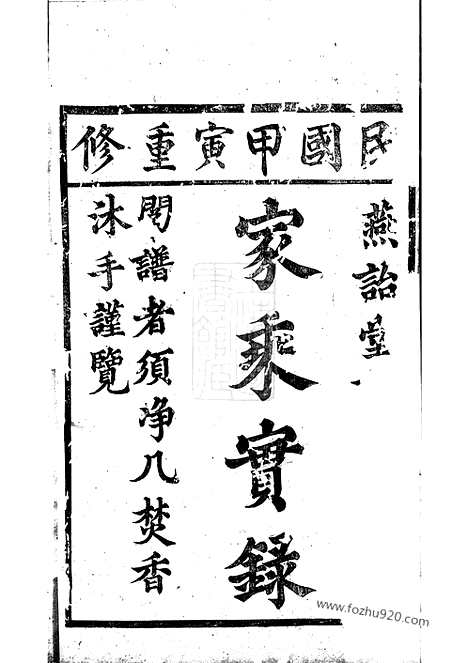 民國甲寅重修
燕詒堂
家乘實錄
閱譜者須净几焚香
沐手謹覽
www.fozhu920.com